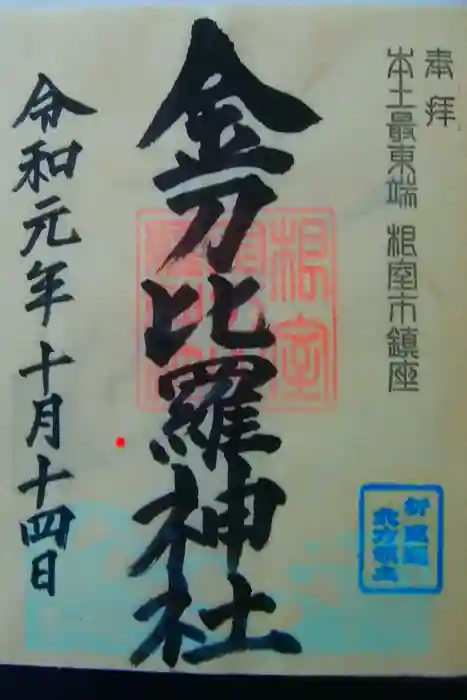 奉拝
本土最東端 根室市鎮座
金刀比羅神社
根室
令和元年十月十四日